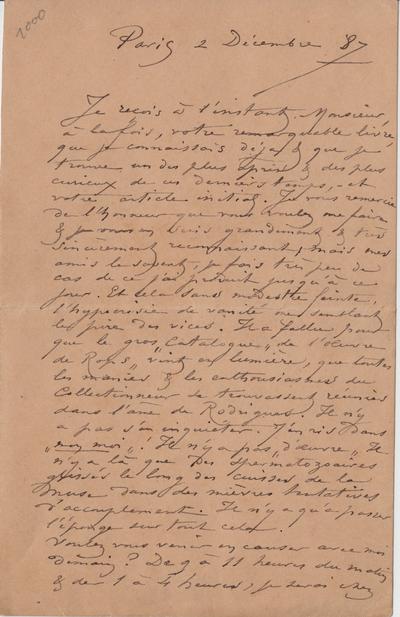 1000
Paris 2 Décembre 87
Je reçois à l'instant, Monsieur,
à la fois, votre remarquable livre,
que je connaissais déjà & que je
trouve un des plus & des plus
curieux de ces derniers temps, et
votre article initial. Je vous remercie
de l'honneur que vous voulez me faire
& je vous en suis grandement & très
sincèrement reconnaissant; mais mes
amis le savent, je fais très peu de
cas de ce j'ai produit jusqu'à ce
jour. Et cela sans modestie feinte,
l'hypocrisie de vanité me semblant
le pire des vices. Il a fallu pour
que le gros "Catalogue" de l'Oeuvre
de Rops" vint en lumière, que toutes
les manies & les enthousiasmes du
Collectionneur se trouvassent réunies
dans l'âme de Rodrigues. Il n'y
a pas à s'en inquiéter. J'en ris dans
"mon moi"! Il n'y a pas "d'oeuvre" Il
n'y a là que des spermatozoaires
glissés le long des cuisses de la
muse dans des mièvres tentatives
d'accouplement. Il n'y a qu'à passer
l'éponge sur tout cela!
Voulez vous venir en causer avec moi
demain? De 9 à 11 heures du matin
& de 1 à 4 heures, je serai chez